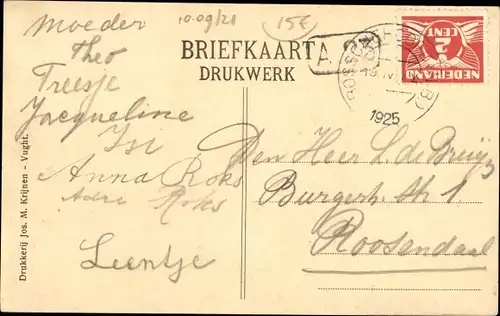 Moeder
Theo
Treesje
Jacqueline
Anna Roks
Adri Roks
Leentje
10-09/21
15€
BRIEFKAART
DRUKWERK
1925
2 CENT
NEDERLAND
Den Heer L. de Bruijn
Burgerh. str 1
Roosendaal
Drukkerij Jos. M. Krijnen - Vught.